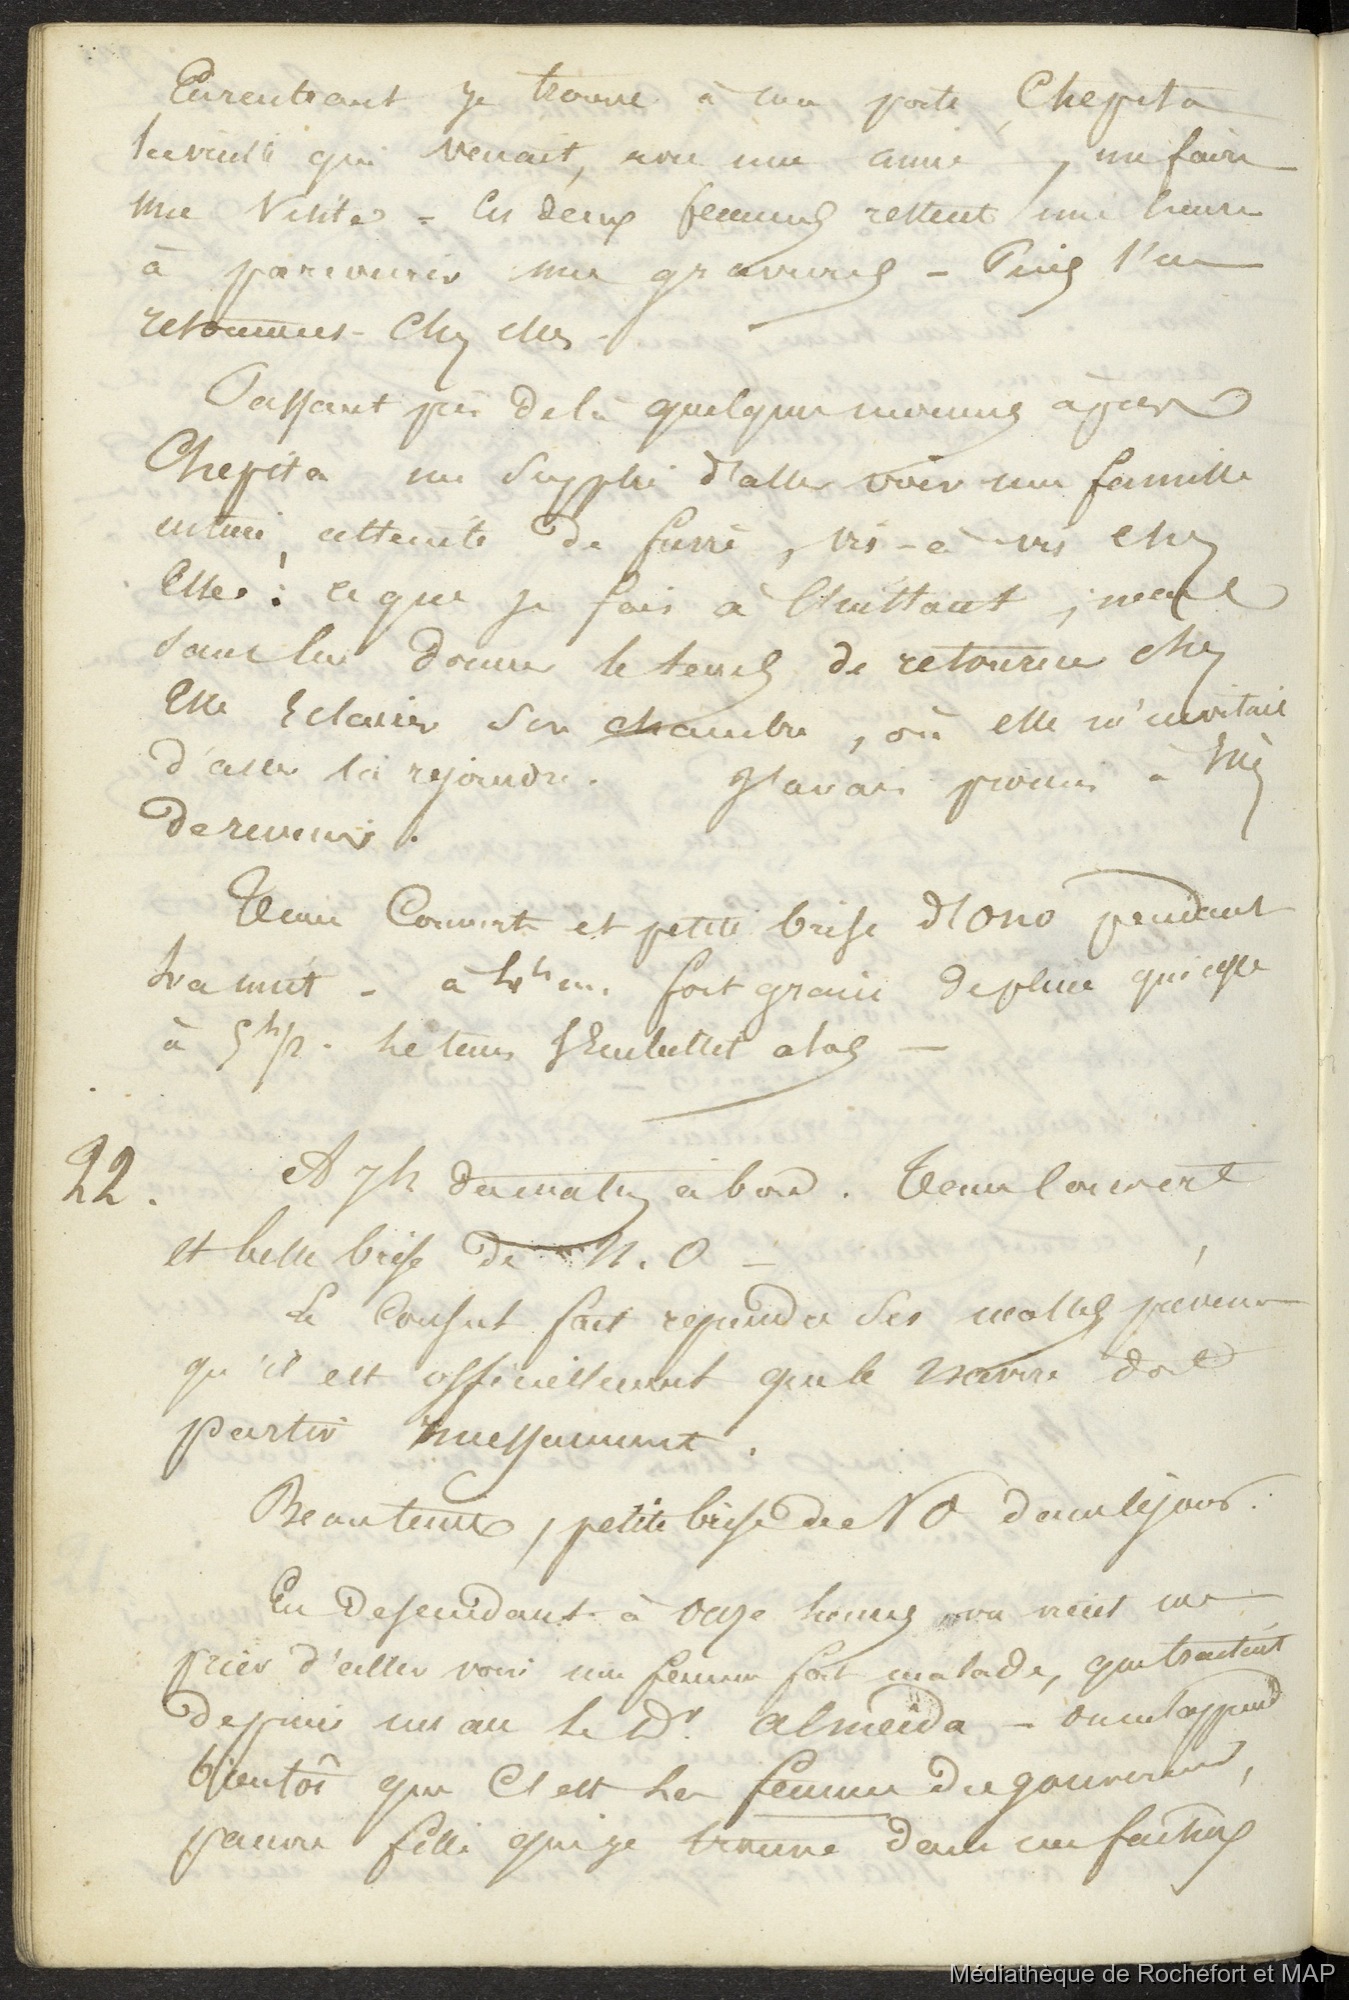 En rentrant je trouve à ma porte, Chepita
qui venait, avec une amie, me faire
une visite - les deux femmes restent une heure
à parcourir mes gravures - Puis l'on
retournent chez elles -
Passant par delà quelques moments après
Chepita me supplie d'aller voir une famille
entière, atteinte de fièvre, vis-à-vis chez
Elle! ce que je fais à l'instant, mais
sans lui donner le temps de retourner chez
Elle éclairer son chambre, où elle m'invitait
d'aller la rejoindre. J'avais promis à
de revenir.
Temps Couvert et petite brise d'ONO pendant
la nuit - à 4h m. fort grain de pluie qui cesse
à 5h 1/2. Le tems s'Embellit alors —
22. A 7h du matin à bord. Tems Couvert
et belle brise de N.O -
Le Consul fait reprendre ses malles, prévenu
qu'il est officiellement que le navire doit
partir incessamment.
Beau tems, petite brise de NO dans le jour.
En descendant à onze heures on vient me
prier d'aller voir une femme fort malade, que traitait
depuis un an le Dr. Almeïda - on m'apprend
bientôt que C'est la femme du gouverneur,
pauvre fille que je trouve dans un fâcheux
Médiathèque de Rochefort et MAP